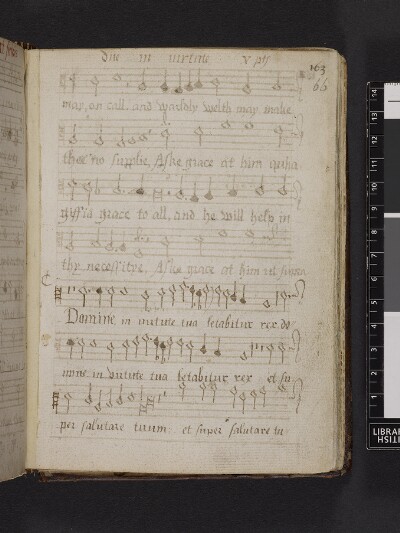 Dne in uirtute V pts
163
66
may, on call. and warldly welth may make
thee no supplie, Aske grace at him quha
gyffis grace to all, and he will help in
thy necessitye, Aske grace at him
Domine in uirtute tua letabitur rex do
mine in virtute tua letabitur rex et su
per salutare tuum: et super salutare tu
14
13
12
11
10
9
8
7
6
5
4
3
2
1
LIBRAR